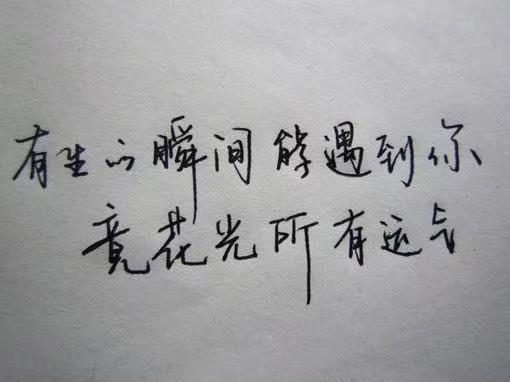 有生的瞬间能遇到你
竟花光所有运气